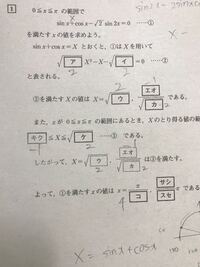 1 0≦x≦π の範囲で
sin x+cos x−√2 sin 2x=0 ……①
を満たす x の値を求めよう。
sin x+cos x=X とおくと，①は X を用いて
√ア X²−X−√イ=0 ……②
2 2
と表される。
②を満たす X の値は X=√ウ，エオ/√カ である。
2
また，x が 0≦x≦π の範囲にあるとき，X のとり得る値の範囲は
キク≦X≦√ケ ……③ である。
-1 2
したがって，X=√ウ，エオ/√カ は③を満たす。
2 2
よって，①を満たす x の値は x=π/コ，サシ/スセ π である。
4
X= sinx+cosx